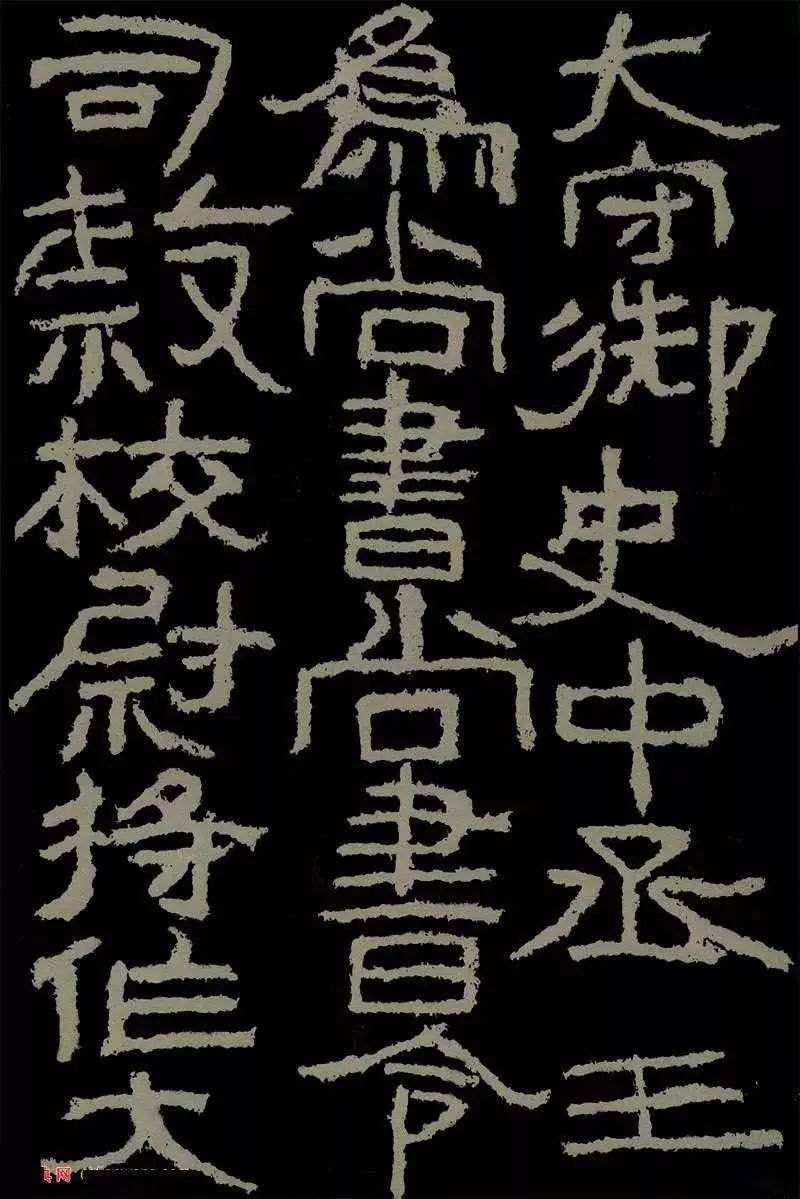 大守御史中丞王
為尚書尚書令
司隸校尉將作大
网